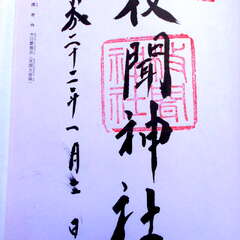 枚聞神社
枚聞
神社
成二十二年一月三日